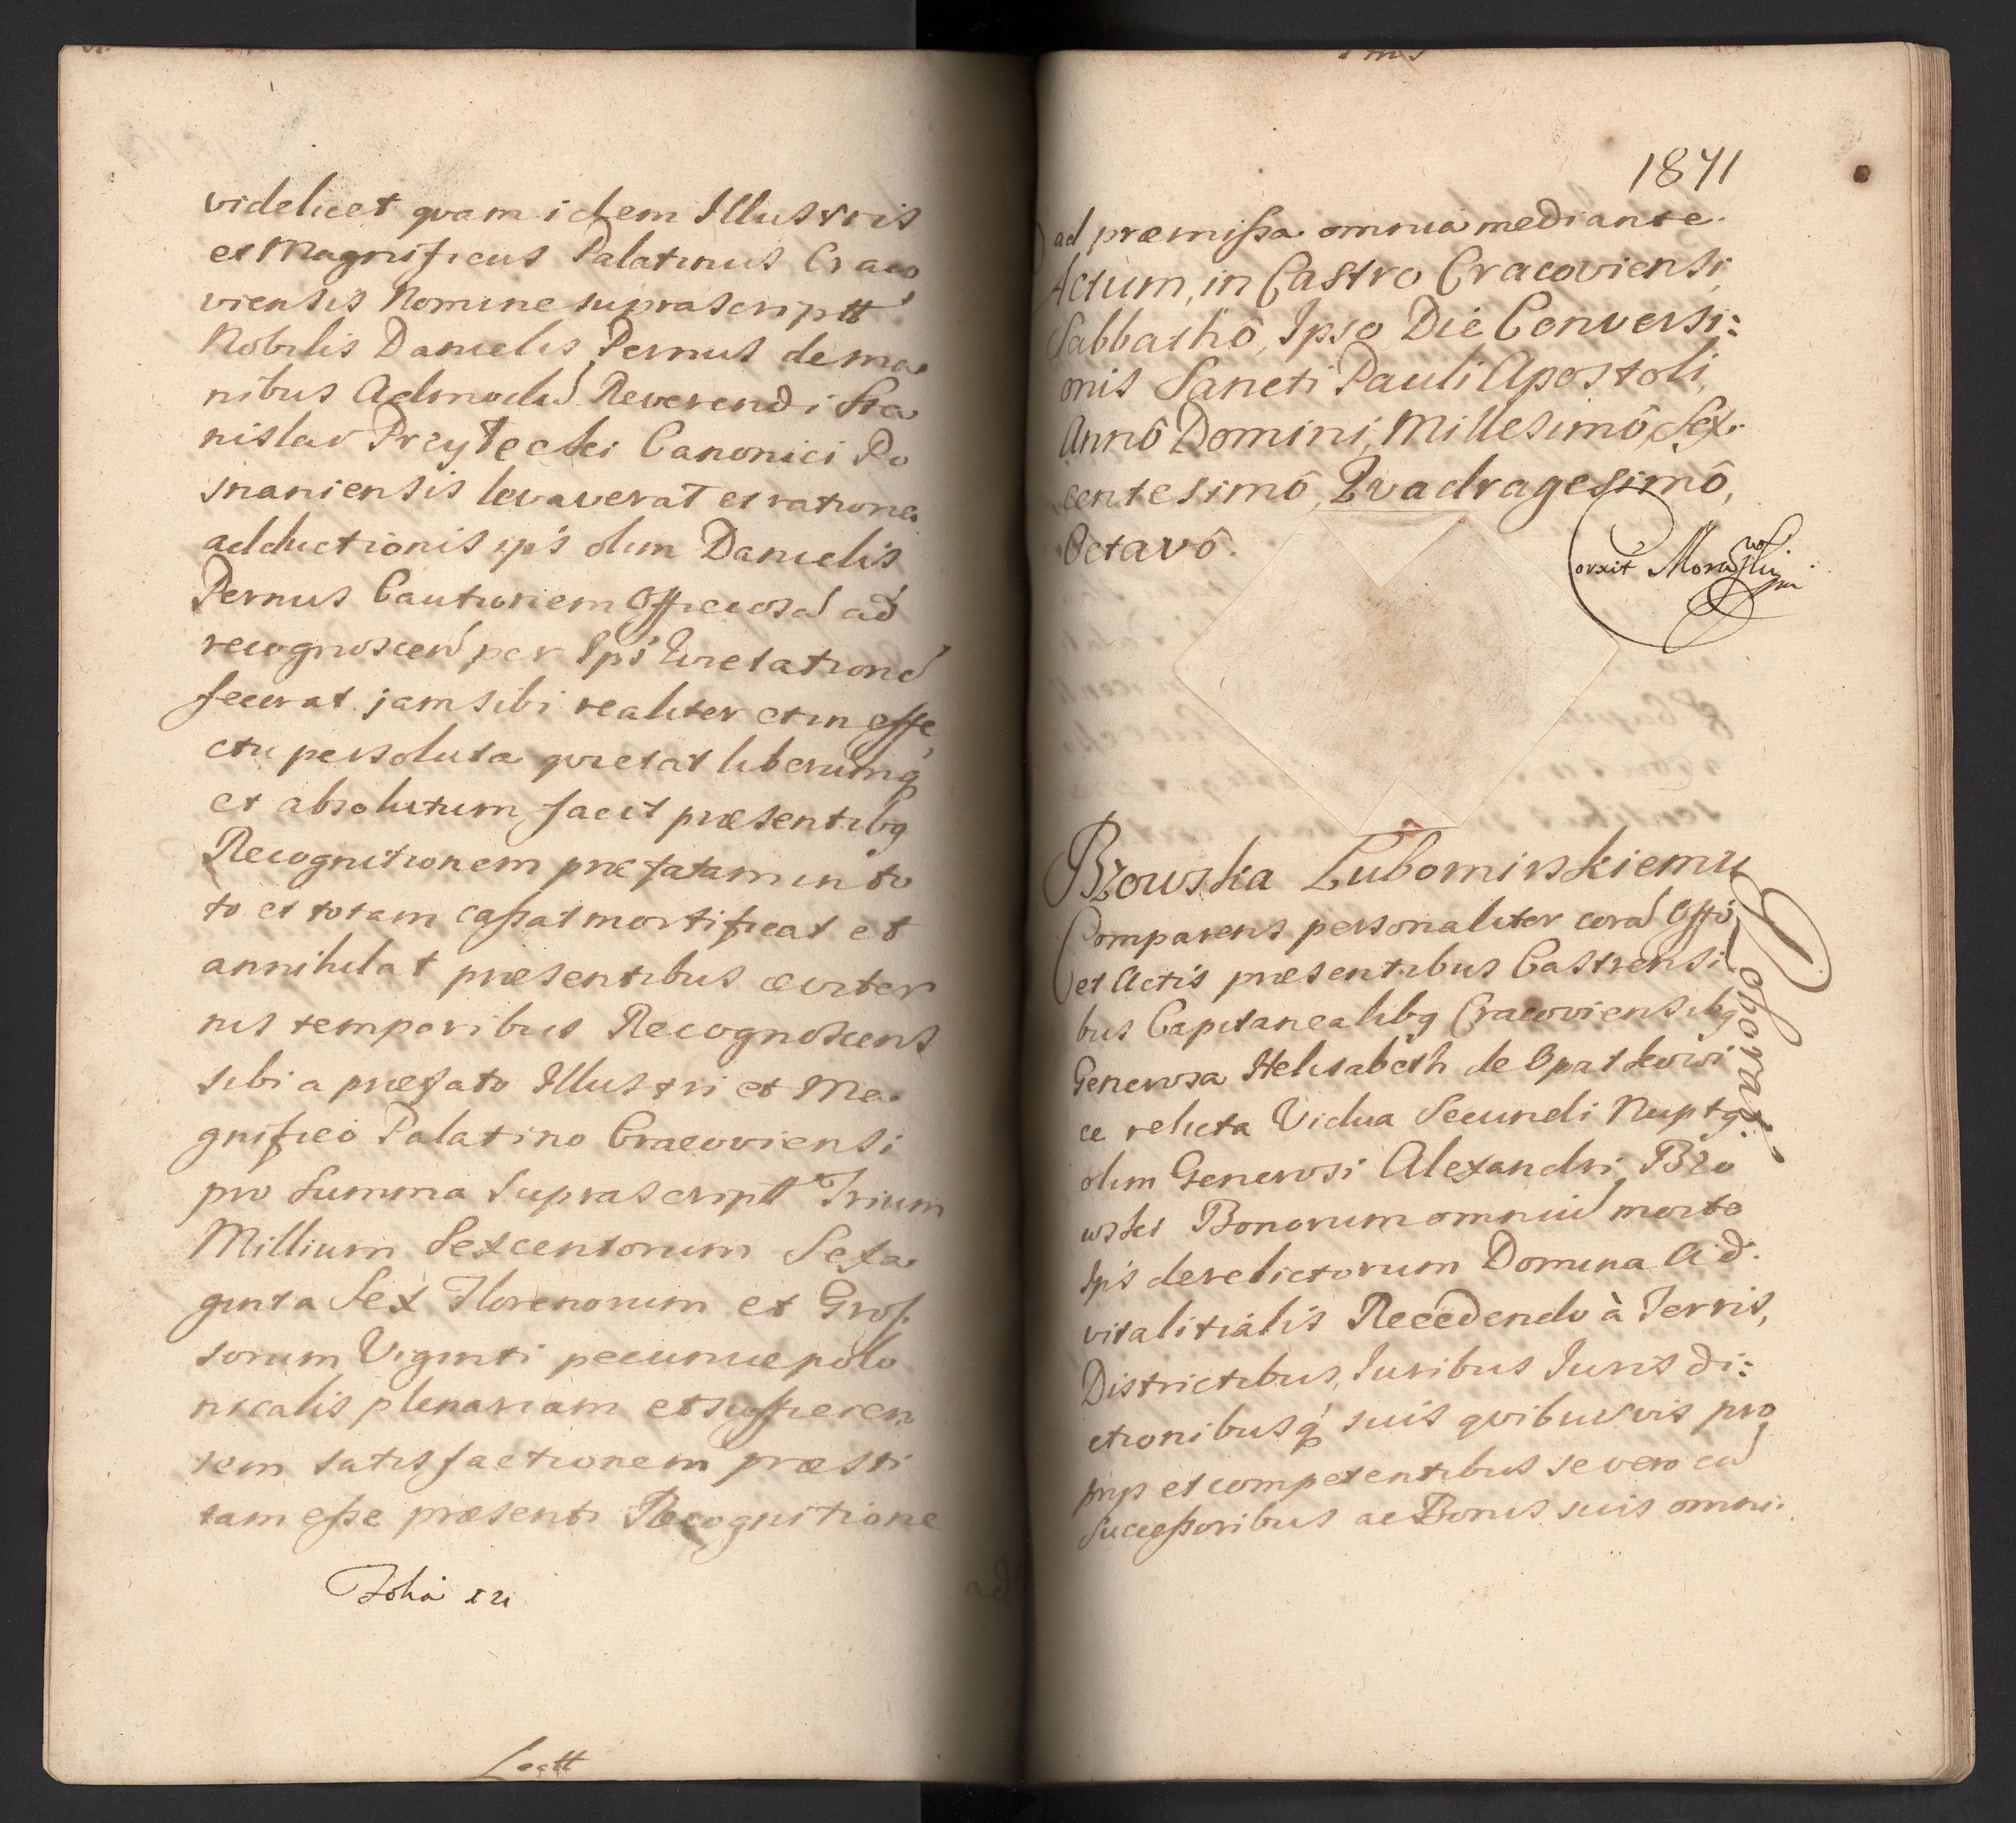 videlicet quam idem Illustris
et Magnificus Palatinus Craco
viensis Nomine suprascriptt
Nobilis Danielis Pernus de ma
nibus Admodū Reverendi Sta
nislai Canonici Po
snaniensis levaverat et ratione
adductionis ips olim Danielis
Pernus Cautionem Officiosā ad
recognoscen per Ips
fecerat jam sibi realiter et in effe
ctu persoluta quietat liberumq
et absolutum facit præsentibq
Recognitionem præfatam in to
to et totam cassat mortificat et
annihilat præsentibus æviter
nis temporibus Recognoscens
sibi a præfato Illustri et Ma
gnifico Palatino Cracoviensi
pro Summa Suprascriptt Trium
Millium Sexcentorum Sexa
ginta Sex Florenorum et Gros
sorum Viginti pecuniæ polo
nicalis plenariam et sufficien
tem satisfactionem præsti
tam esse præsenti Recognitione
ad
1871
ad præmissa omnia mediante.
Actum, in Castro Cracoviensi,
Sabbathô, Ipso Die Conversi:
onis Sancti Pauli Apostoli,
Annô Domini, Millesimô, Sex
centesimô, Qvadragesimô,
Octavô.
Bzowska Lubomirskiemu
Roborat.
Comparens personaliter corā Offō
et Actis præsentibus Castrensi
bus Capitanealibq Cracoviensibq
Generosa Helisabeth de Opatkowi
ce relicta Vidua Secundi Nuptq
olim Generosi Alexandri Bzo
wski Bonorum omniū morte
Ips derelictorum Domina Ad.
vitalitialis Recedendo à Terris,
Districtibus, Iuribus Iurisdi:
ctionibusq suis qvibusvis pro
prys et competentibus se vero cū
Successoribus ac Bonis suis omni